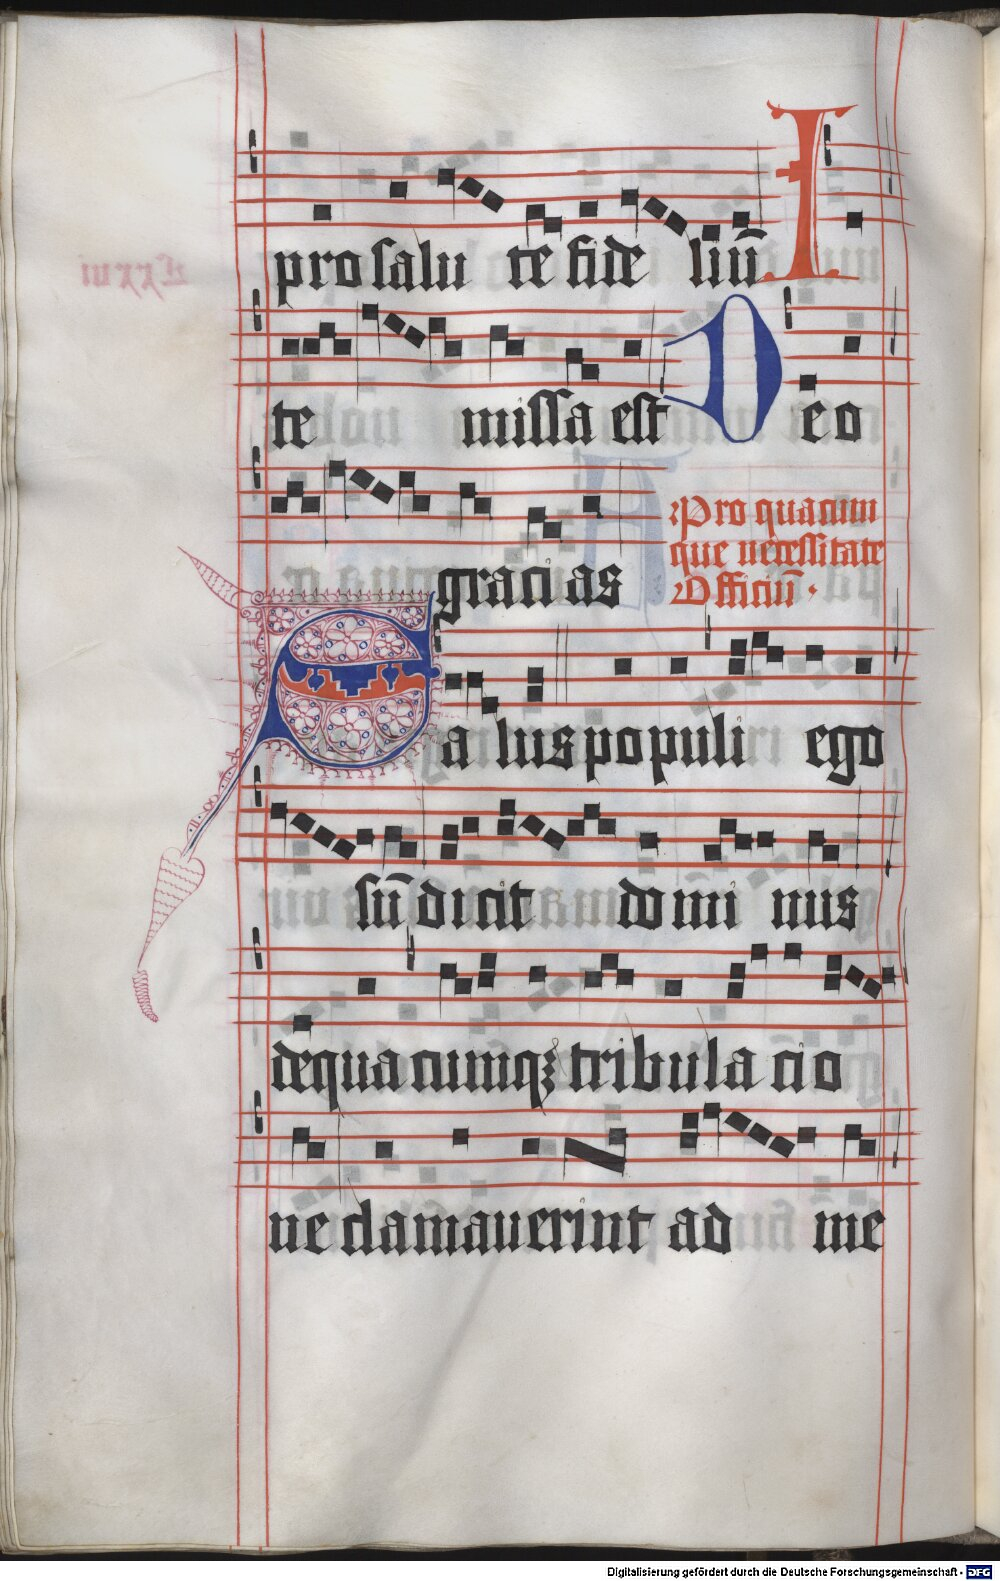 pro salu te fide liū I
te missa est Deo
gracias
Pro quacum
que necessitate
Officiū.
Salus populi ego
sū dicit domi nus
de qua cumqꝫ tribula cio
ne clamauerint ad me
Digitalisierung gefördert durch die Deutsche Forschungsgemeinschaft - DFG